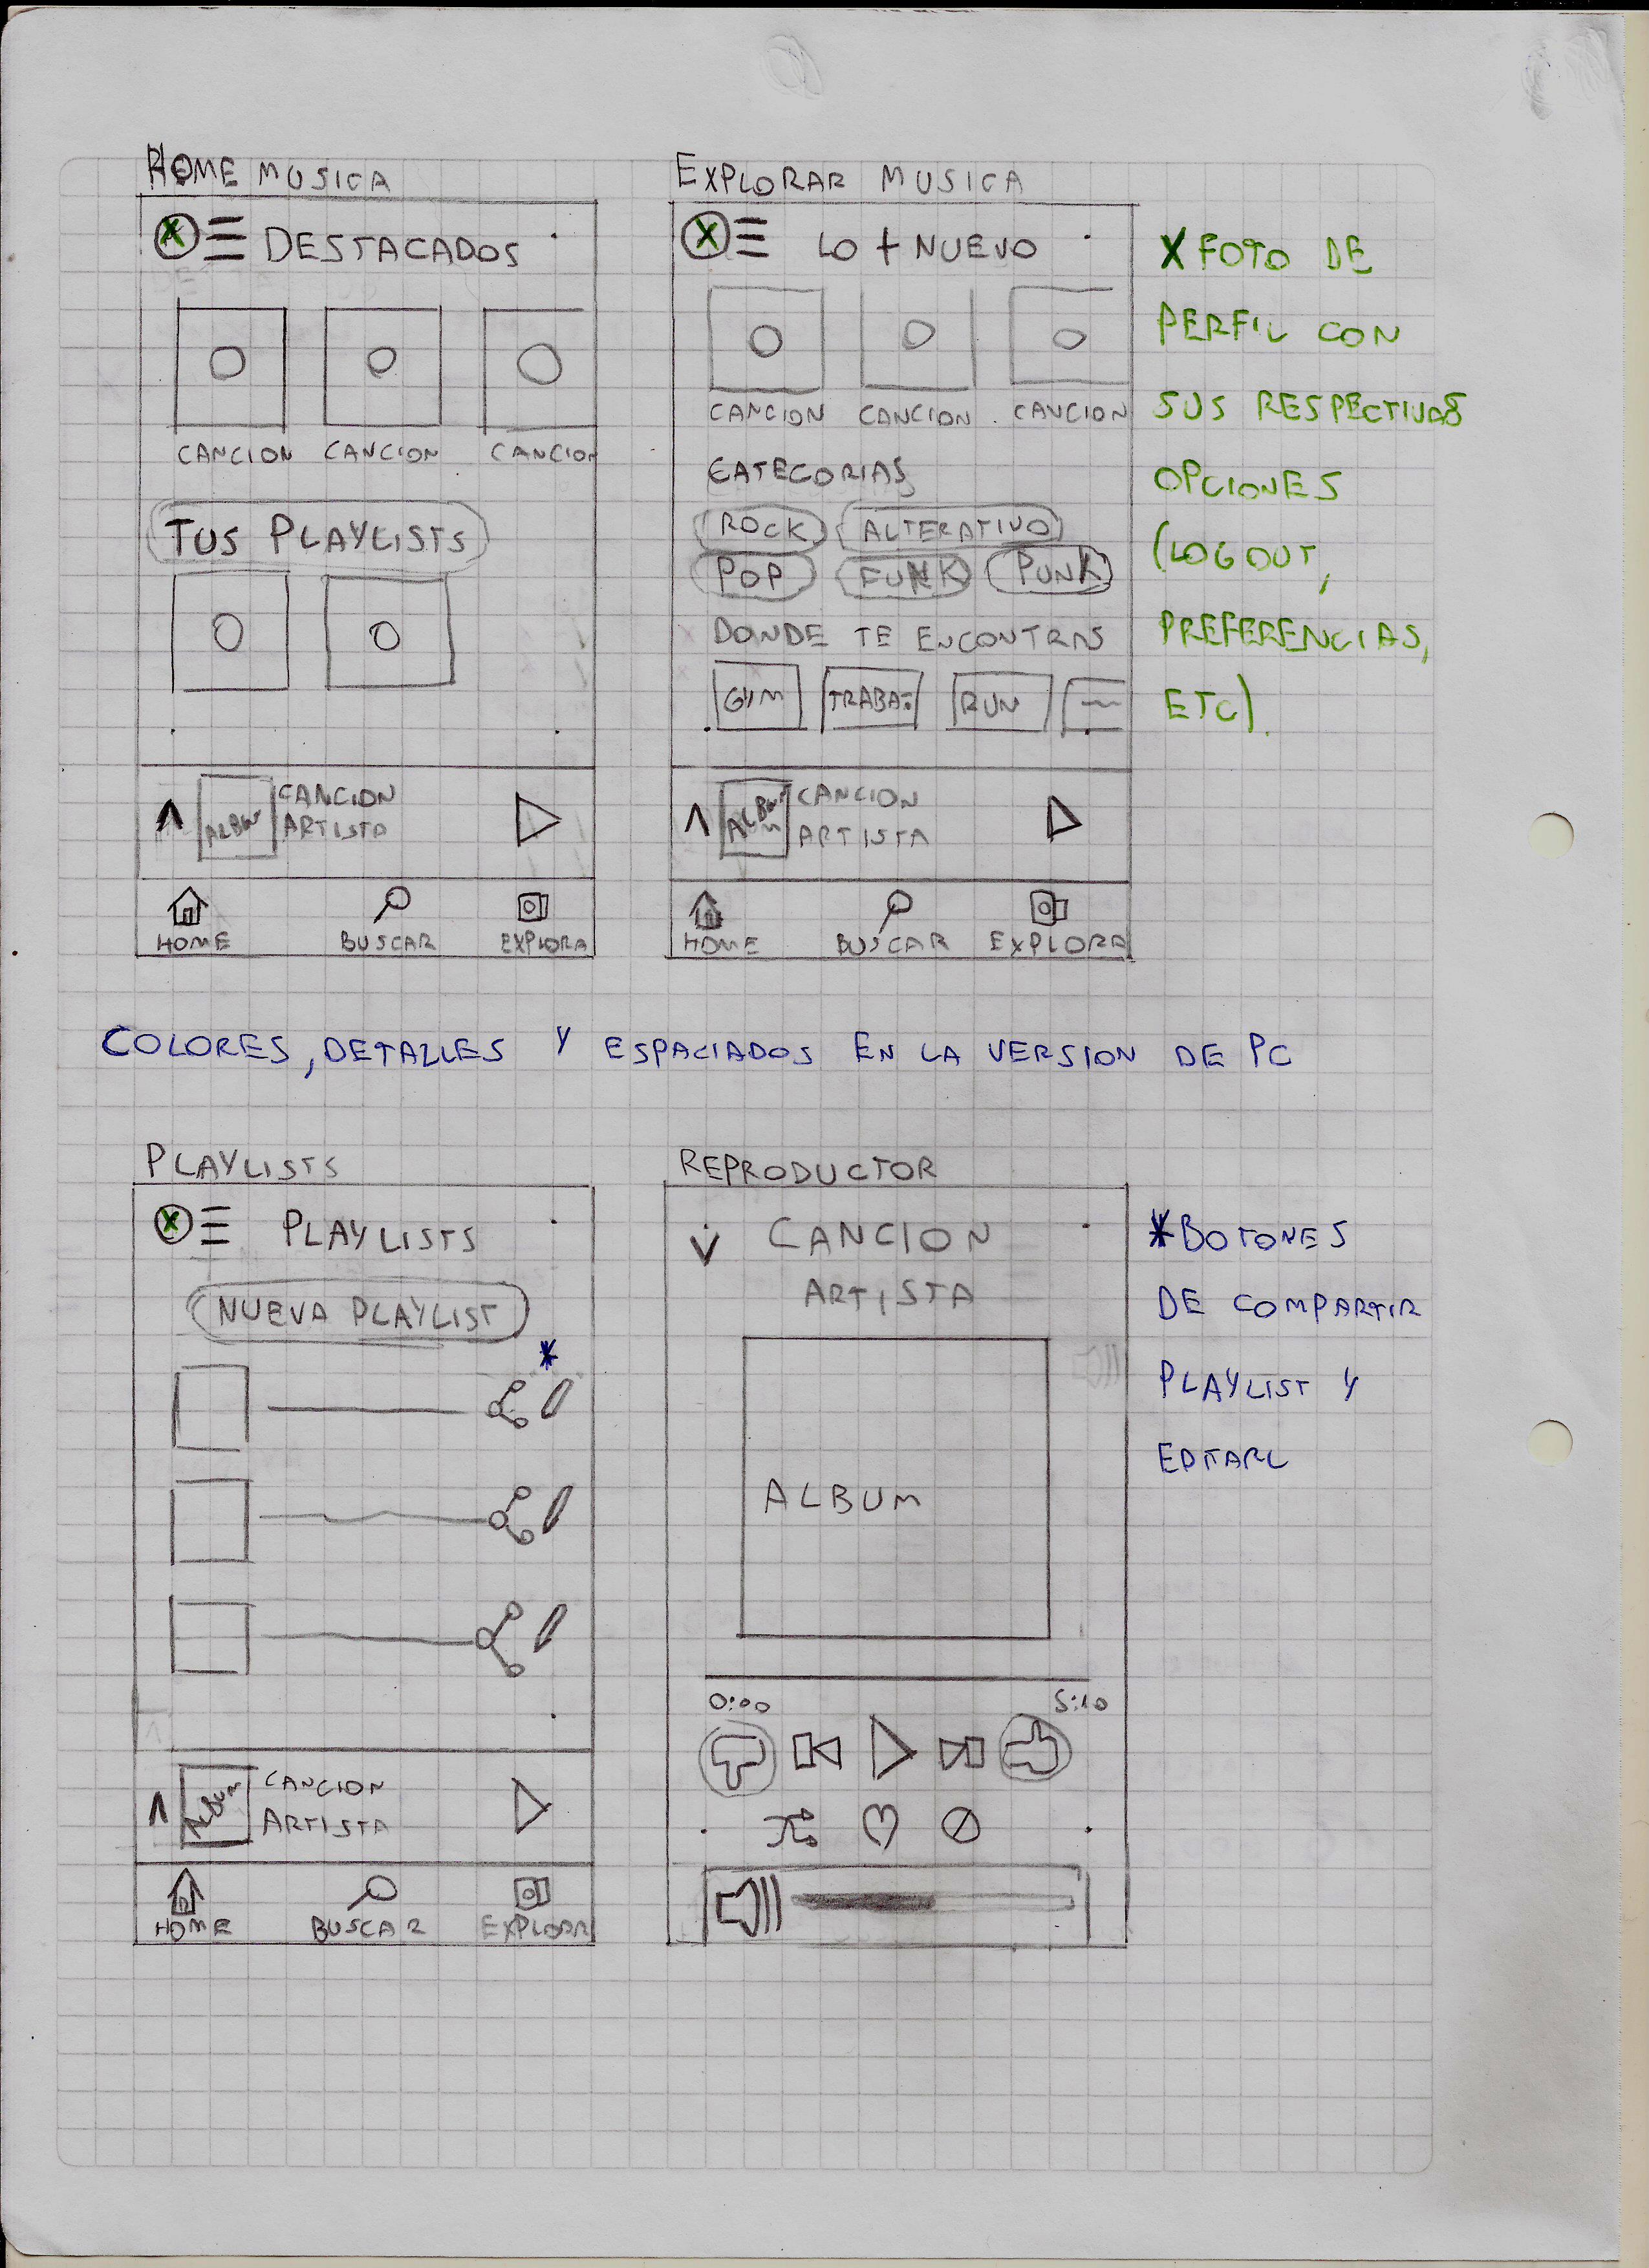 HOME MUSICA
DESTACADOS
CANCION CANCION CANCION
TUS PLAYLISTS
ALBUM CANCION
ARTISTA
HOME BUSCAR EXPLORA
EXPLORAR MUSICA
LO + NUEVO
CANCION CANCION CANCION
CATEGORIAS
ROCK ALTERATIVO
POP FUNK PUNK
DONDE TE ENCONTRAS
GYM TRABAJ RUN
ALBUM CANCION
ARTISTA
HOME BUSCAR EXPLORA
X FOTO DE
PERFIL CON
SUS RESPECTIVAS
OPCIONES
(LOGOUT,
PREFERENCIAS,
ETC).
COLORES, DETALLES Y ESPACIADOS EN LA VERSION DE PC
PLAYLISTS
X PLAYLISTS
NUEVA PLAYLIST
*
ALBUM CANCION
ARTISTA
HOME BUSCAR EXPLORA
REPRODUCTOR
CANCION
ARTISTA
ALBUM
0:00 5:10
*BOTONES
DE COMPARTIR
PLAYLIST Y